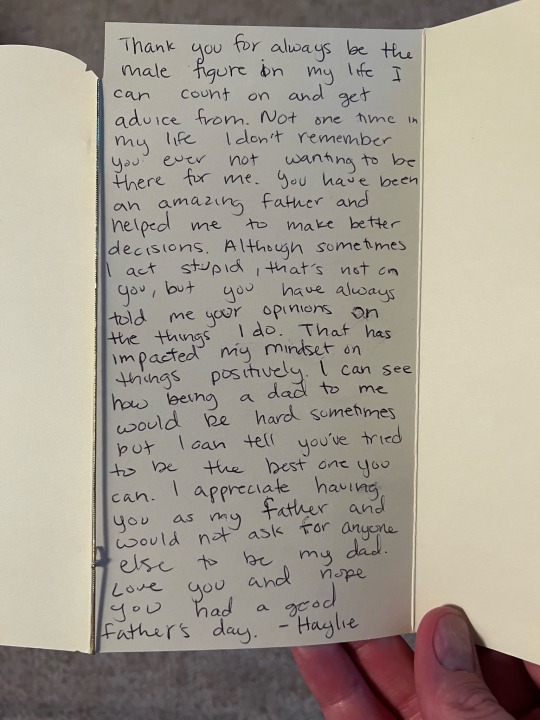 Thank you for always be the
male figure in my life I
can count on and get
advice from. Not one time in
my life I don't remember
you ever not wanting to be
there for me. You have been
an amazing father and
helped me to make better
decisions. Although sometimes
I act stupid, that's not on
you, but you have always
told me your opinions on
the things I do. That has
impacted my mindset on
things positively. I can see
how being a dad to me
would be hard sometimes
but I can tell you've tried
to be the best one you
can. I appreciate having
you as my father and
would not ask for anyone
else to be my dad.
Love you and hope
you had a good
father's day. - Haylie